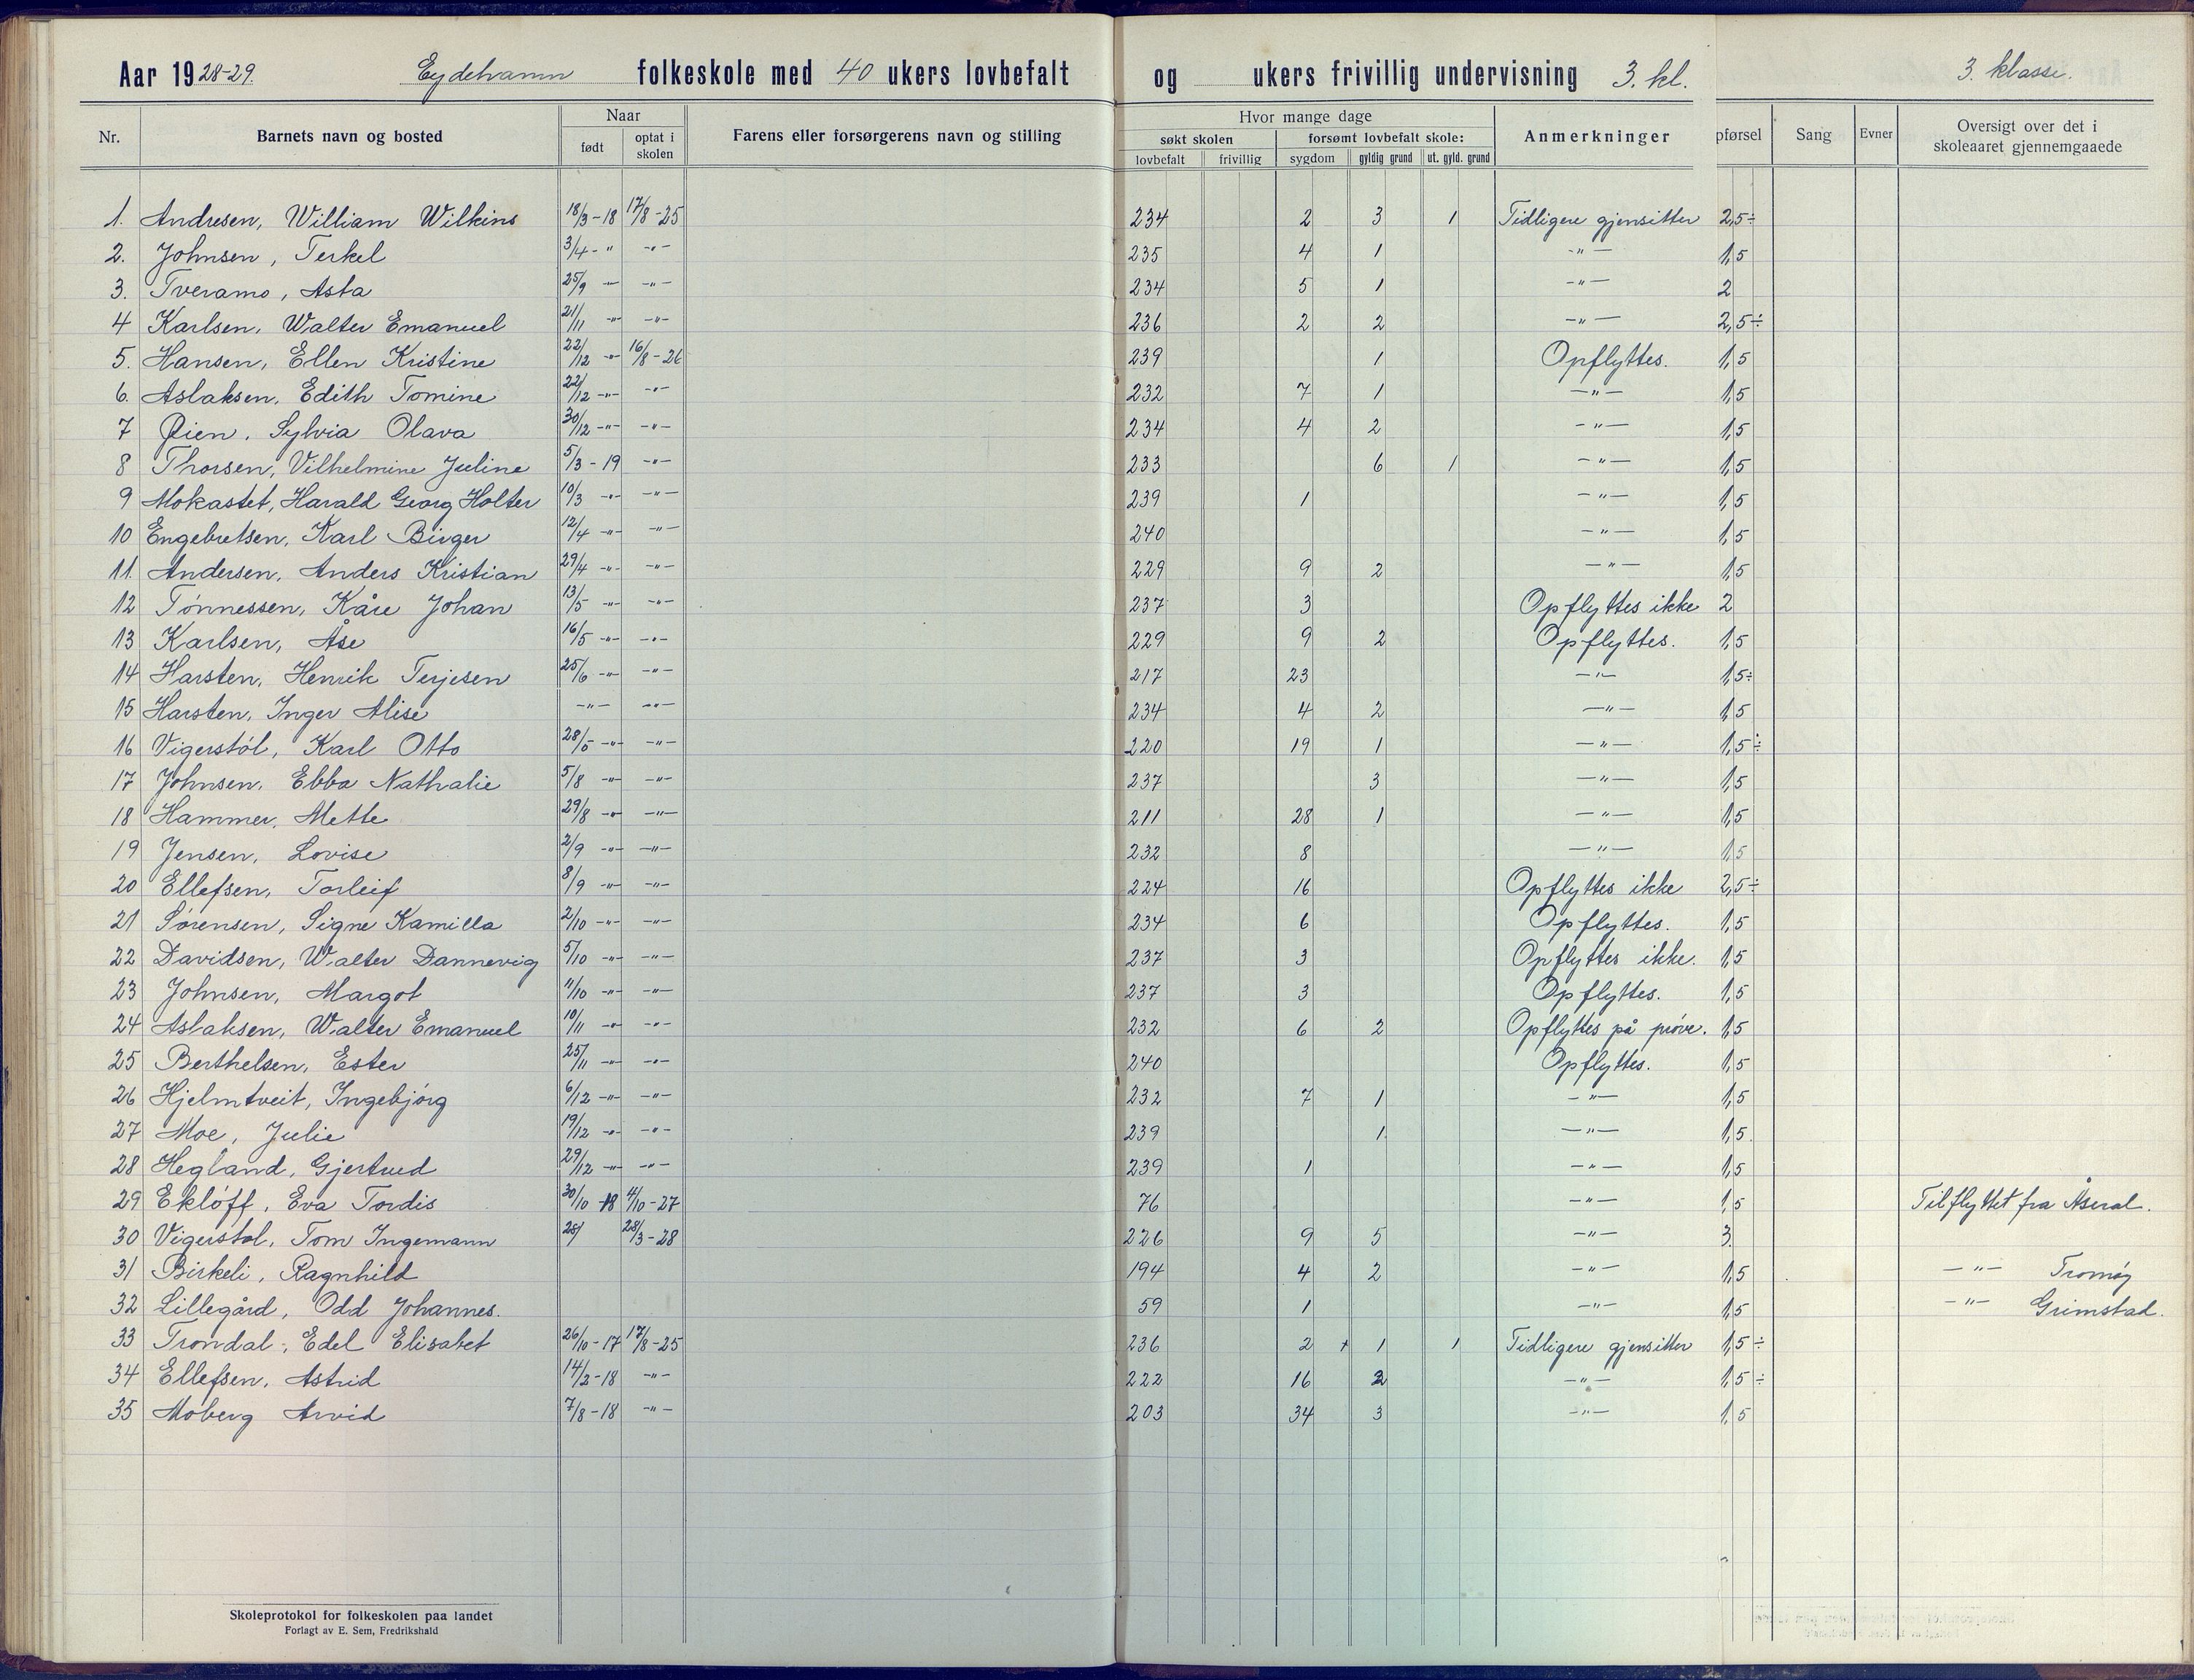 Aar 1928-29. Eydehavn folkeskole med 40 ukers lovbefalt og ukers frivillig undervisning 3. kl. 3. klasse.
Nr. Barnets navn og bosted Naar Farens eller forsørgerens navn og stilling Hvor mange dage Anmerkninger pførsel Sang Evner Oversigt over det i skoleaaret gjennemgaaede
født optat i skolen søkt skolen forsømt lovbefalt skole:
lovbefalt frivillig sygdom gyldig grund ut. gyld. grund
1. Andresen, William Wilkins 18/3-18 17/8-25 234 2 3 1 Tidligere gjensitter 2,5÷
2. Johnsen, Terkel 3/4-" -"- 235 4 1 -"- 1,5
3. Tveramo, Asta 25/9 -"- -"- 234 5 1 -"- 2
4 Karlsen, Walter Emanuel 21/11 -"- -"- 236 2 2 -"- 2,5÷
5. Hansen, Ellen Kristine 22/12 -"- 16/8-26 239 1 Opflyttes. 1,5
6. Aslaksen, Edith Tomine 22/12 -"- -"- 232 7 1 -"- 1,5
7 Øien, Sylvia Olava 30/12 -"- -"- 234 4 2 -"- 1,5
8 Thorsen, Vilhelmine Juline 5/3-19 -"- 233 6 1 -"- 1,5
9 Mokastet, Harald Georg Holter 10/3 -"- -"- 239 1 -"- 1,5
10 Engebretsen, Karl Birger 12/4 -"- -"- 240 -"- 1,5
11. Andersen, Anders Kristian 29/4 -"- -"- 229 9 2 -"- 1,5
12 Tønnessen, Kåre Johan 13/5 -"- -"- 237 3 Opflyttes ikke 2
13 Karlsen, Åse 16/5 -"- -"- 229 9 2 Opflyttes. 1,5
14 Harsten, Henrik Terjesen 25/6 -"- -"- 217 23 -"- 1,5÷
15 Harsten, Inger Alise -"- -"- 234 4 2 -"- 1,5
16 Vigerstøl, Karl Otto -"- -"- 220 19 1 -"- 1,5÷
17 Johnsen, Ebba Nathalie 5/8 -"- -"- 237 3 -"- 1,5
18 Hammer, Mette 29/8 -"- -"- 211 28 1 -"- 1,5
19 Jensen, Lovise 2/9 -"- -"- 232 8 -"- 1,5
20 Ellefsen, Torleif 8/9 -"- -"- 224 16 Opflyttes ikke 2,5÷
21 Sørensen, Signe Kamilla 2/10 -"- -"- 234 6 Opflyttes. 1,5
22 Davidsen, Walter Dannevig 5/10 -"- -"- 237 3 Opflyttes ikke. 1,5
23 Johnsen, Margot 11/10 -"- -"- 237 3 Opflyttes. 1,5
24 Aslaksen, Walter Emanuel 10/11 -"- -"- 232 6 2 Opflyttes på prøve. 1,5
25 Berthelsen, Ester 25/11 -"- -"- 240 Opflyttes. 1,5
26 Hjelmtveit, Ingebjørg 6/12 -"- -"- 232 7 1 -"- 1,5
27 Moe, Julie 19/12 -"- -"- 239 1. -"- 1,5.
28 Hegland, Gjertrud 29/12 -"- -"- 239 1 -"- 1,5
29 Ekløff, Eva Tordis 30/10-18 4/10-27 76 -"- 1,5 Tilflyttet fra Åseral.
30 Vigerstøl, Tom Ingemann 28/ 28/3-28 226 9 5 -"- 3.
31 Birkeli, Ragnhild 194 4 2 -"- 1,5 -"- Tromøy
32 Lillegård, Odd Johannes. 59 1 -"- 1,5 -"- Grimstad.
33 Trondal, Edel Elisabet 26/10-17 17/8-25 236 2 + 1 1 Tidligere gjensitter 1,5÷
34 Ellefsen, Astrid 14/2-18 -"- 222 16 2 -"- 1,5÷
35 Moberg Arvid 7/8-18 -"- 203 34 3 -"- 1,5
Skoleprotokol for folkeskolen paa landet
Forlagt av E. Sem, Fredrikshald